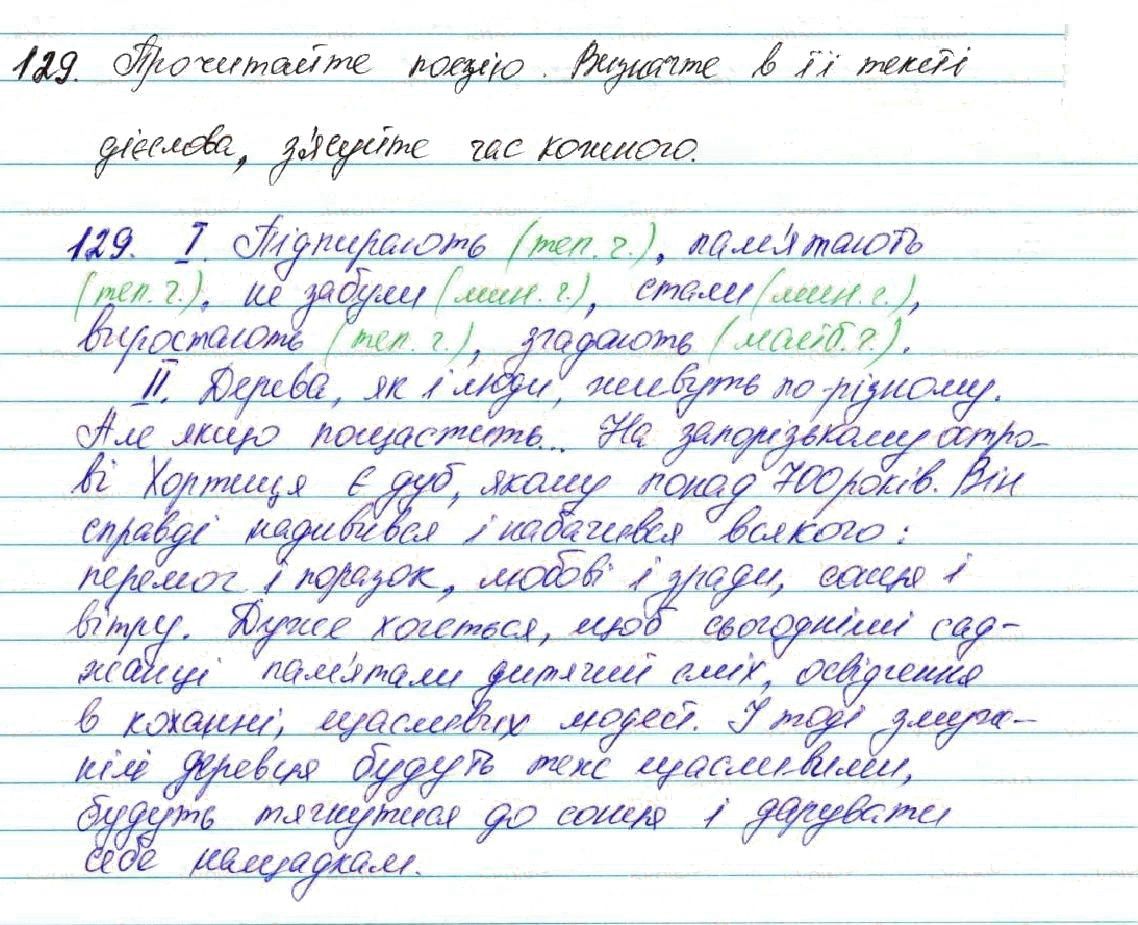 129. Прочитайте поезію. Визначте в її тексті
дієслова, з'ясуйте час кожного.
129. I. Підпирають (теп. ч.), пам'ятають
(теп. ч.), не забули (мин. ч.), стали (мин. ч.),
виростають (теп. ч.), згадають (майб. ч.).
II. Дерева, як і люди, живуть по-різному.
Але якщо пощастить... На запорізькому остро-
ві Хортиця є дуб, якому понад 700 років. Він
справді надивився і набачився всякого:
перемог і поразок, любові і зради, сонця і
вітру. Дуже хочеться, щоб сьогоднішні сад-
жанці пам'ятали дитячий сміх, освідчення
в коханні, щасливих людей. І тоді змуж-
нілі деревця будуть теж щасливими,
будуть тягнутися до сонця і дарувати
себе нащадкам.